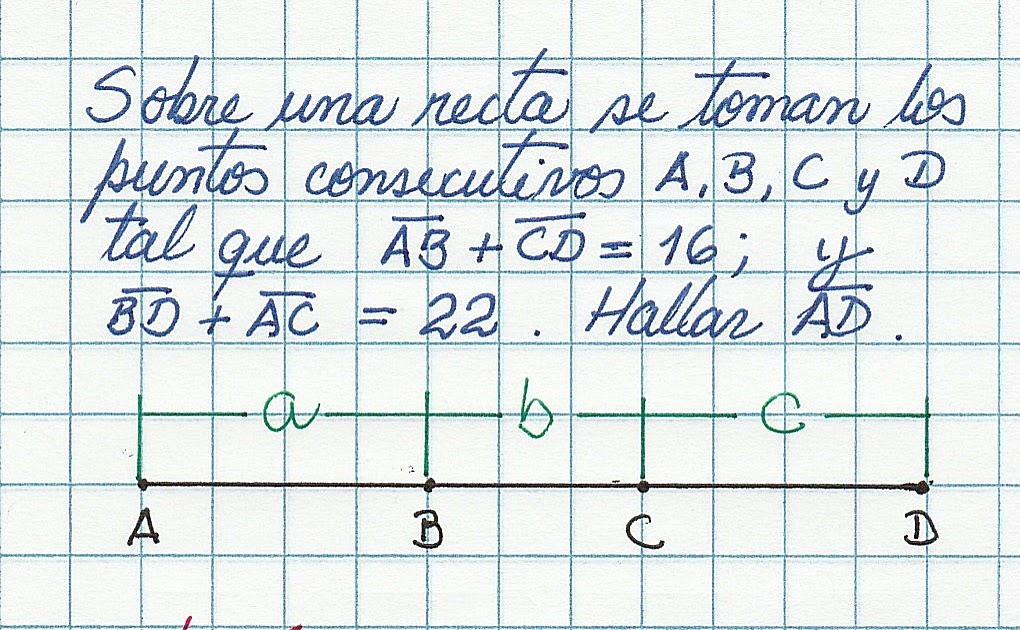 Sobre una recta se toman los
puntos consecutivos A, B, C y D
tal que A̅B̅ + C̅D̅ = 16; y
B̅D̅ + A̅C̅ = 22. Hallar A̅D̅.
a b c
A B C D